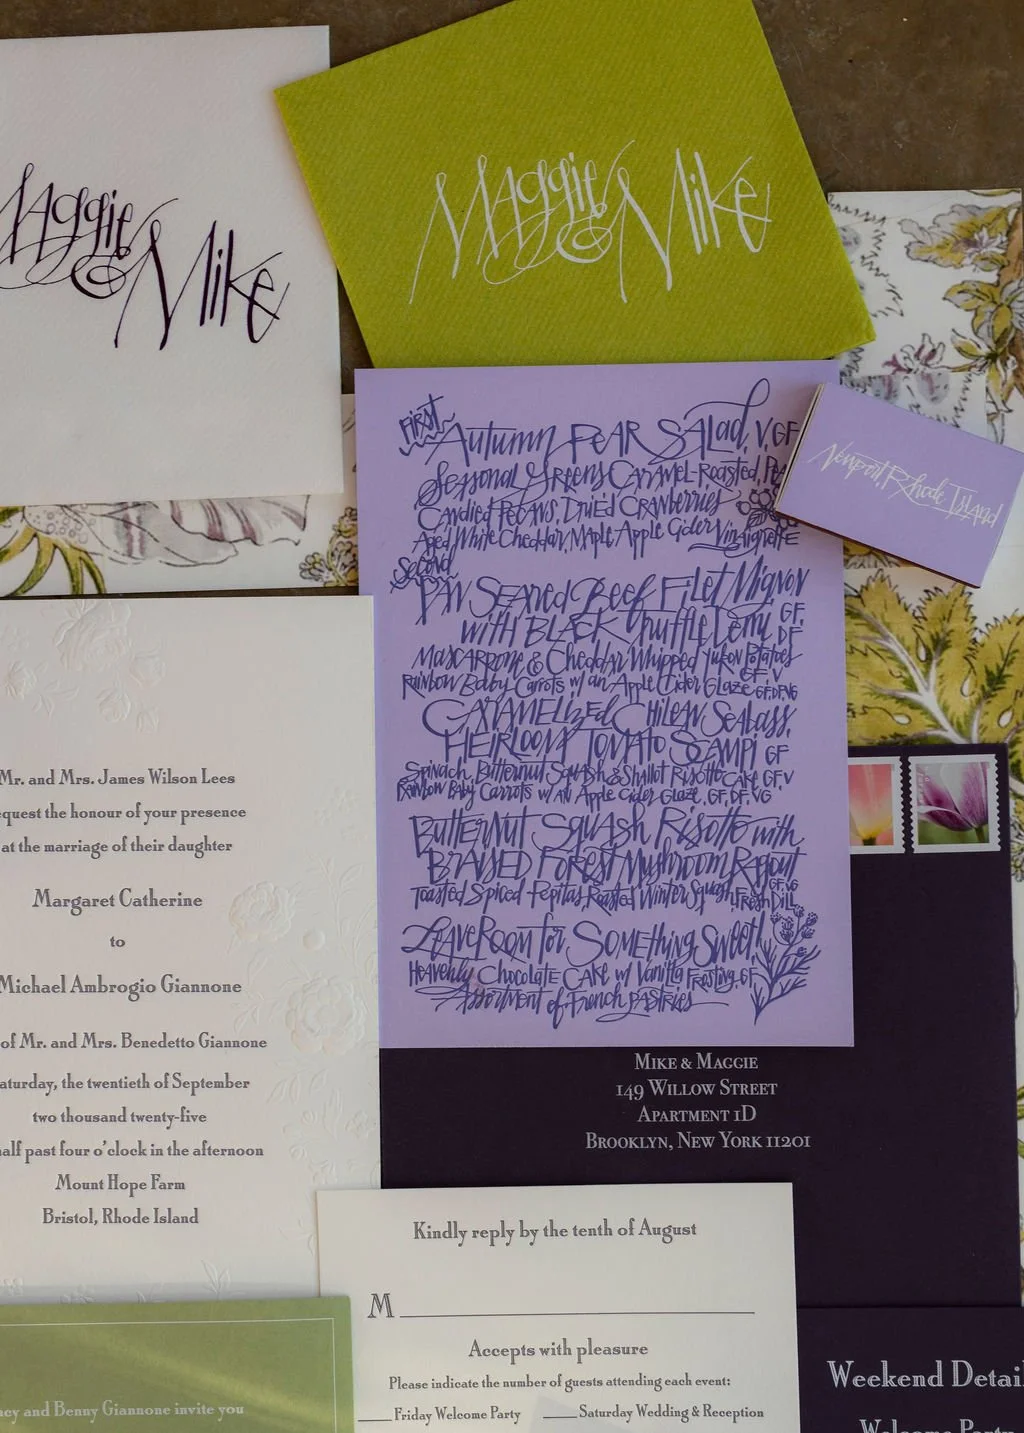 Maggie
& Mike
Maggie
& Mike
First
Autumn Pear Salad, V, GF
Seasonal Greens, Caramel-Roasted, Pea
Candied Pecans, Dried Cranberries
Aged White Cheddar, Maple Apple Cider Vinaigrette
Second
Pan Seared Beef Filet Mignon
with Black Truffle Demi GF, DF
Mascarpone & Cheddar Whipped Yukon Potatoes GF, V
Rainbow Baby Carrots w/ an Apple Cider Glaze GF, DF, VG
Caramelized Chilean Seabass,
Heirloom Tomato Scampi GF
Spinach, Butternut Squash & Shallot Risotto Cake GF, V
Rainbow Baby Carrots w/ an Apple Cider Glaze, GF, DF, VG
Butternut Squash Risotto with
Braised Forest Mushroom Ragout GF, VG
Toasted Spiced Pepitas, Roasted Winter Squash, Fresh Dill
Leave Room for Something Sweet!
Heavenly Chocolate Cake w/ Vanilla Frosting, GF
Assortment of French Pastries
Newport, Rhode Island
Mr. and Mrs. James Wilson Lees
equest the honour of your presence
at the marriage of their daughter
Margaret Catherine
to
Michael Ambrogio Giannone
of Mr. and Mrs. Benedetto Giannone
aturday, the twentieth of September
two thousand twenty-five
half past four o'clock in the afternoon
Mount Hope Farm
Bristol, Rhode Island
Mike & Maggie
149 Willow Street
Apartment 1D
Brooklyn, New York 11201
Kindly reply by the tenth of August
M
Accepts with pleasure
Please indicate the number of guests attending each event:
Friday Welcome Party Saturday Wedding & Reception
cy and Benny Giannone invite you
Weekend Detai
Welcome Party